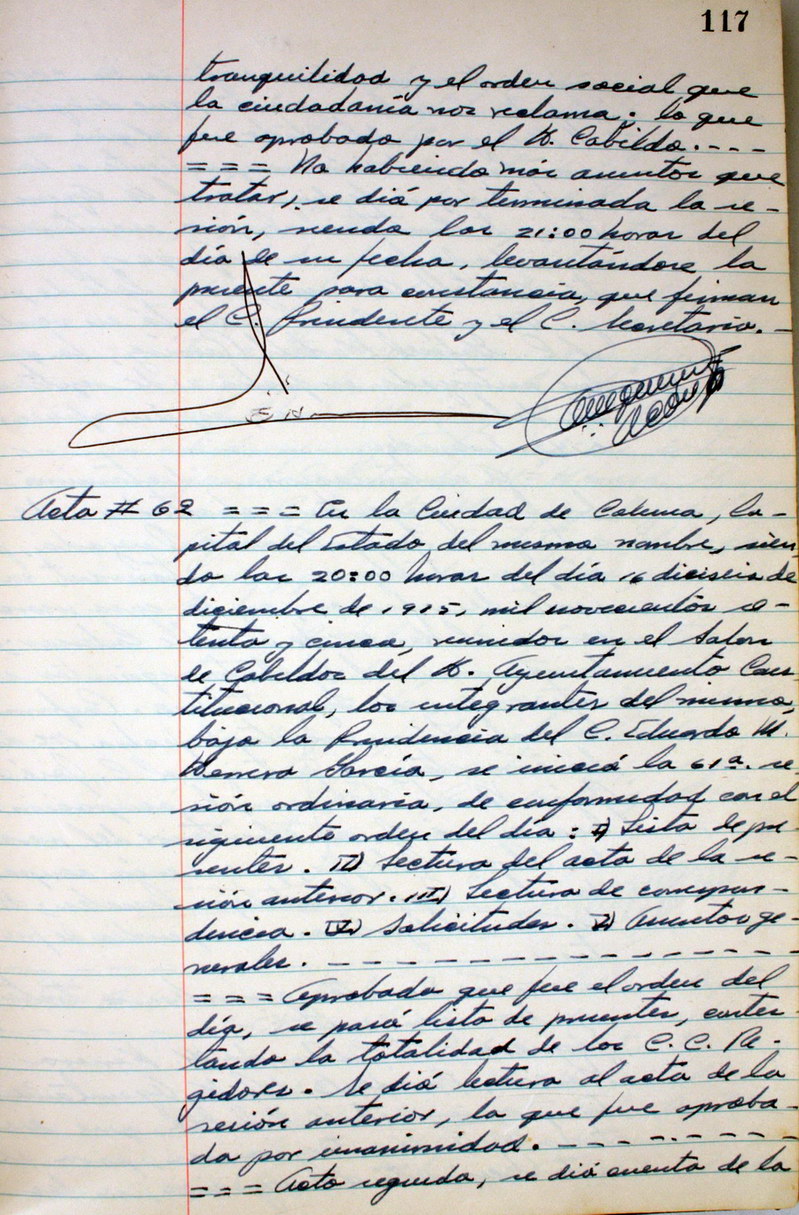 117
tranquilidad y el orden social que
la ciudadanía nos reclama; lo que
fue aprobado por el H. Cabildo. - - -
= = = No habiendo más asuntos que
tratar, se dió por terminada la se-
sión, siendo las 21:00 horas del
día de su fecha, levantándose la
presente para constancia, que firman
el C. Presidente y el C. Secretario. -
Acta # 62 = = = En la Ciudad de Colima, Ca-
pital del Estado del mismo nombre, sien
do las 20:00 horas del día 16 dieciseis de
diciembre de 1975, mil novecientos se-
tenta y cinco, reunidos en el Salon
de Cabildos del H. Ayuntamiento Cons
titucional, los integrantes del mismo,
bajo la Presidencia del C. Eduardo M.
Herrera García, se inició la 61a. se-
sión ordinaria, de conformidad con el
siguiente orden del día: I) Lista de pre
sentes. II) Lectura del acta de la se-
sión anterior. III) Lectura de correspon-
dencia. IV) Solicitudes. V) Asuntos ge-
nerales. - - - - - - - - - - - - - -
= = = Aprobado que fue el orden del
día, se pasó lista de presentes, contes
tando la totalidad de los C. C. Re-
gidores. Se dió lectura al acta de la
sesión anterior, la que fue aproba-
da por unanimidad. - - - - - - - -
= = = Acto seguido, se dió cuenta de la